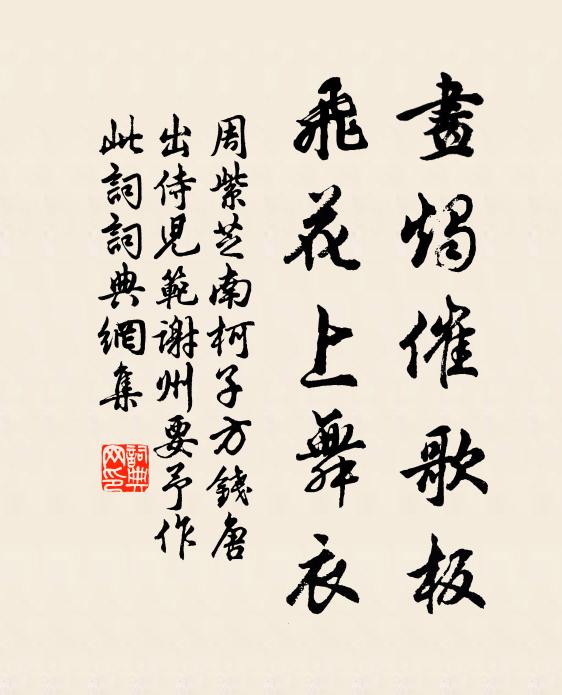 畫燭催歌板
飛花上舞衣
周紫芝南柯子方錢唐
出侍兒範謝州要予作
此詞詞典網集
詞典
网印